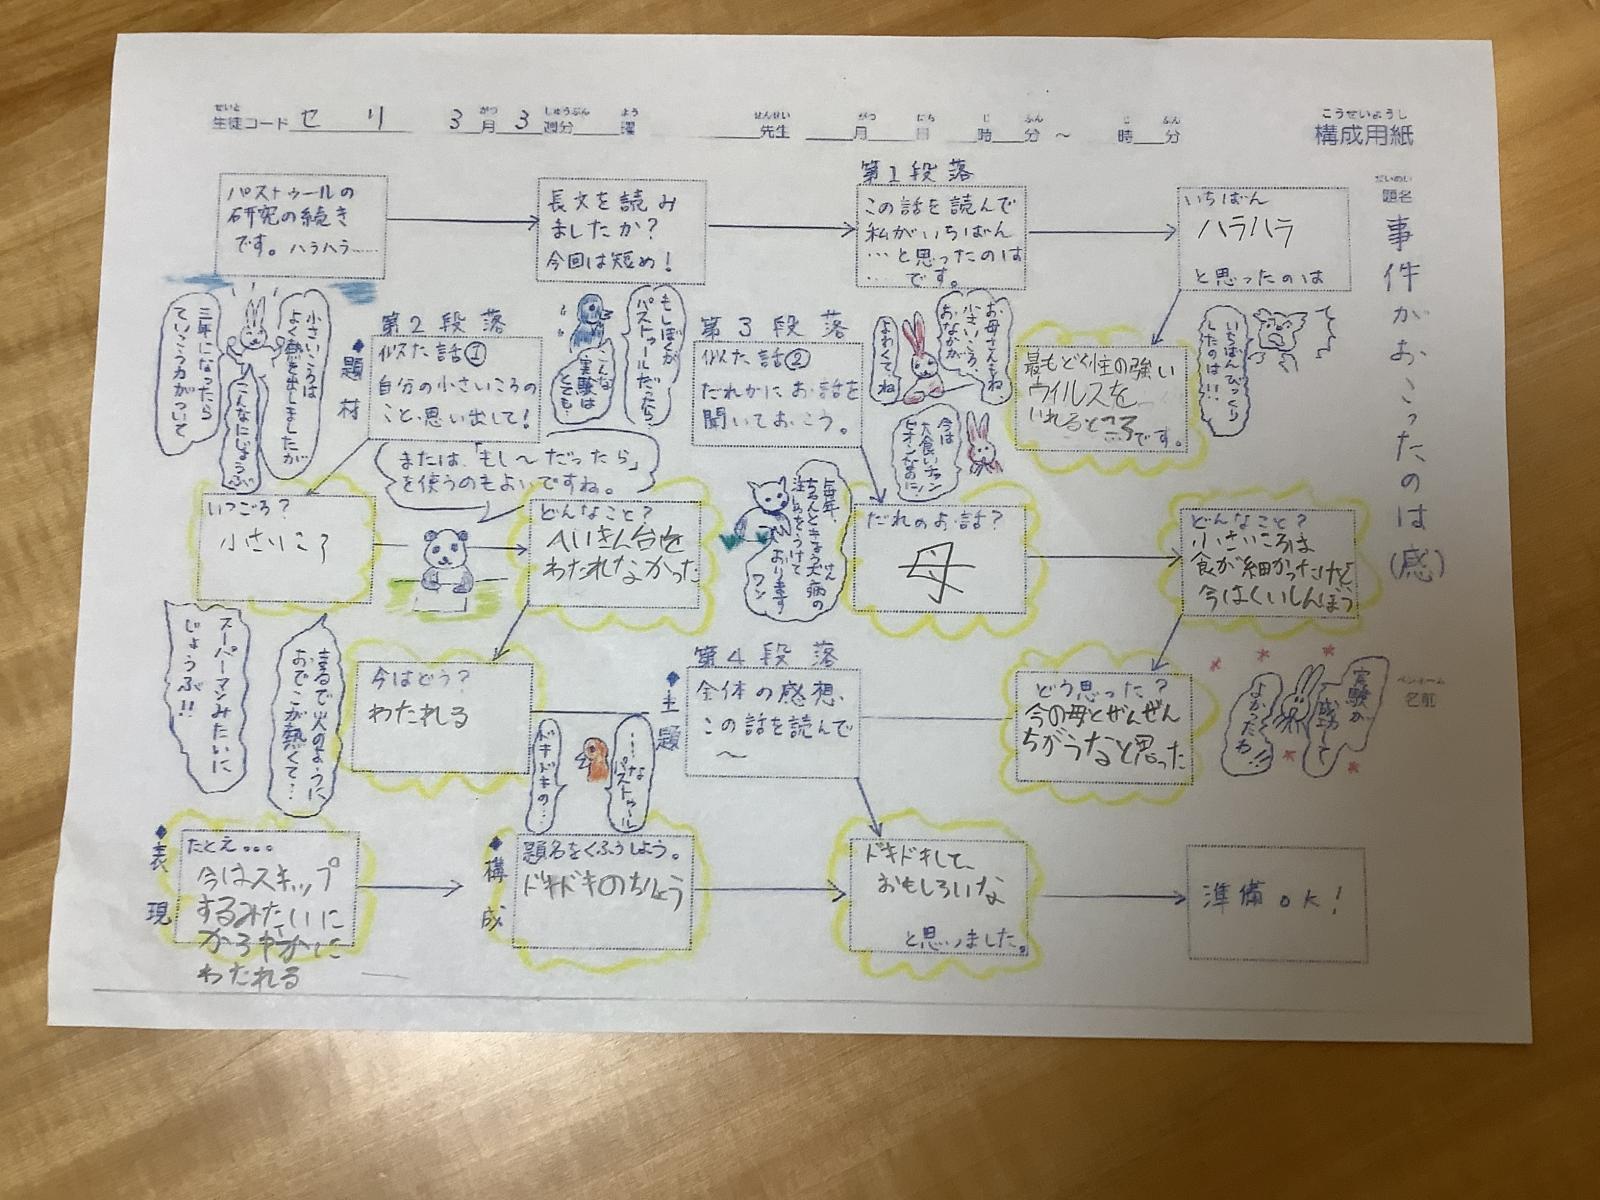 せいと がつ しゅうぶん よう せんせい がつ にち じ ふん じ ふん
生徒コード セリ 3月 3週分 曜 先生 月 日 時 分 ～ 時 分
こうせいようし
構成用紙
だいめい
題名
事件がおこったのは(感)
パストゥールの
研究の続き
です。ハラハラ……
長文を読み
ましたか？
今回は短め！
第1段落
この話を読んで
私がいちばん
…と思ったのは
… です。
いちばん
ハラハラ
と思ったのは
いちばんびっくり
したのは!!
最もどく性の強い
ウイルスを
いれるところです。
◆題材
第2段落
似た話①
自分の小さいころの
こと、思い出して！
小さいころは
よく熱を出しましたが
三年になったら
ていこう力がついて
こんなにじょうぶ
または、「もし～だったら」
を使うのもよいですね。
もしぼくが
パストゥールだったら、
こんな
実験は
とても…
いつごろ？
小さいころ
どんなこと？
へいきん台を
わたれなかった
今はどう？
わたれる
第3段落
似た話②
だれかにお話を
聞いておこう。
お母さんもね、
小さいころ、
おなかが
よわくてね
今は
大食いチャン
ピオンなのに！
毎年、
ちゃんときょう犬病の
注しゃをうけて
おります
ワン
だれのお話？
母
どんなこと？
小さいころは
食が細かったけど
今はくいしんぼう
どう思った？
今の母とぜんぜん
ちがうなと思った
ペンネーム
名前
実験が
成功して
よかったわ!!
◆主題
第4段落
全体の感想、
この話を読んで
～
まるで火のように
おでこが熱くて…
スーパーマンみたいに
じょうぶ!!
……な
パストゥール
ドキドキの…
◆表現
たとえ。。。
今はスキップ
するみたいに
かろやかに
わたれる
◆構成
題名をくふうしよう。
ドキドキのちょう
ドキドキして、
おもしろいな
と思いました。
準備OK！